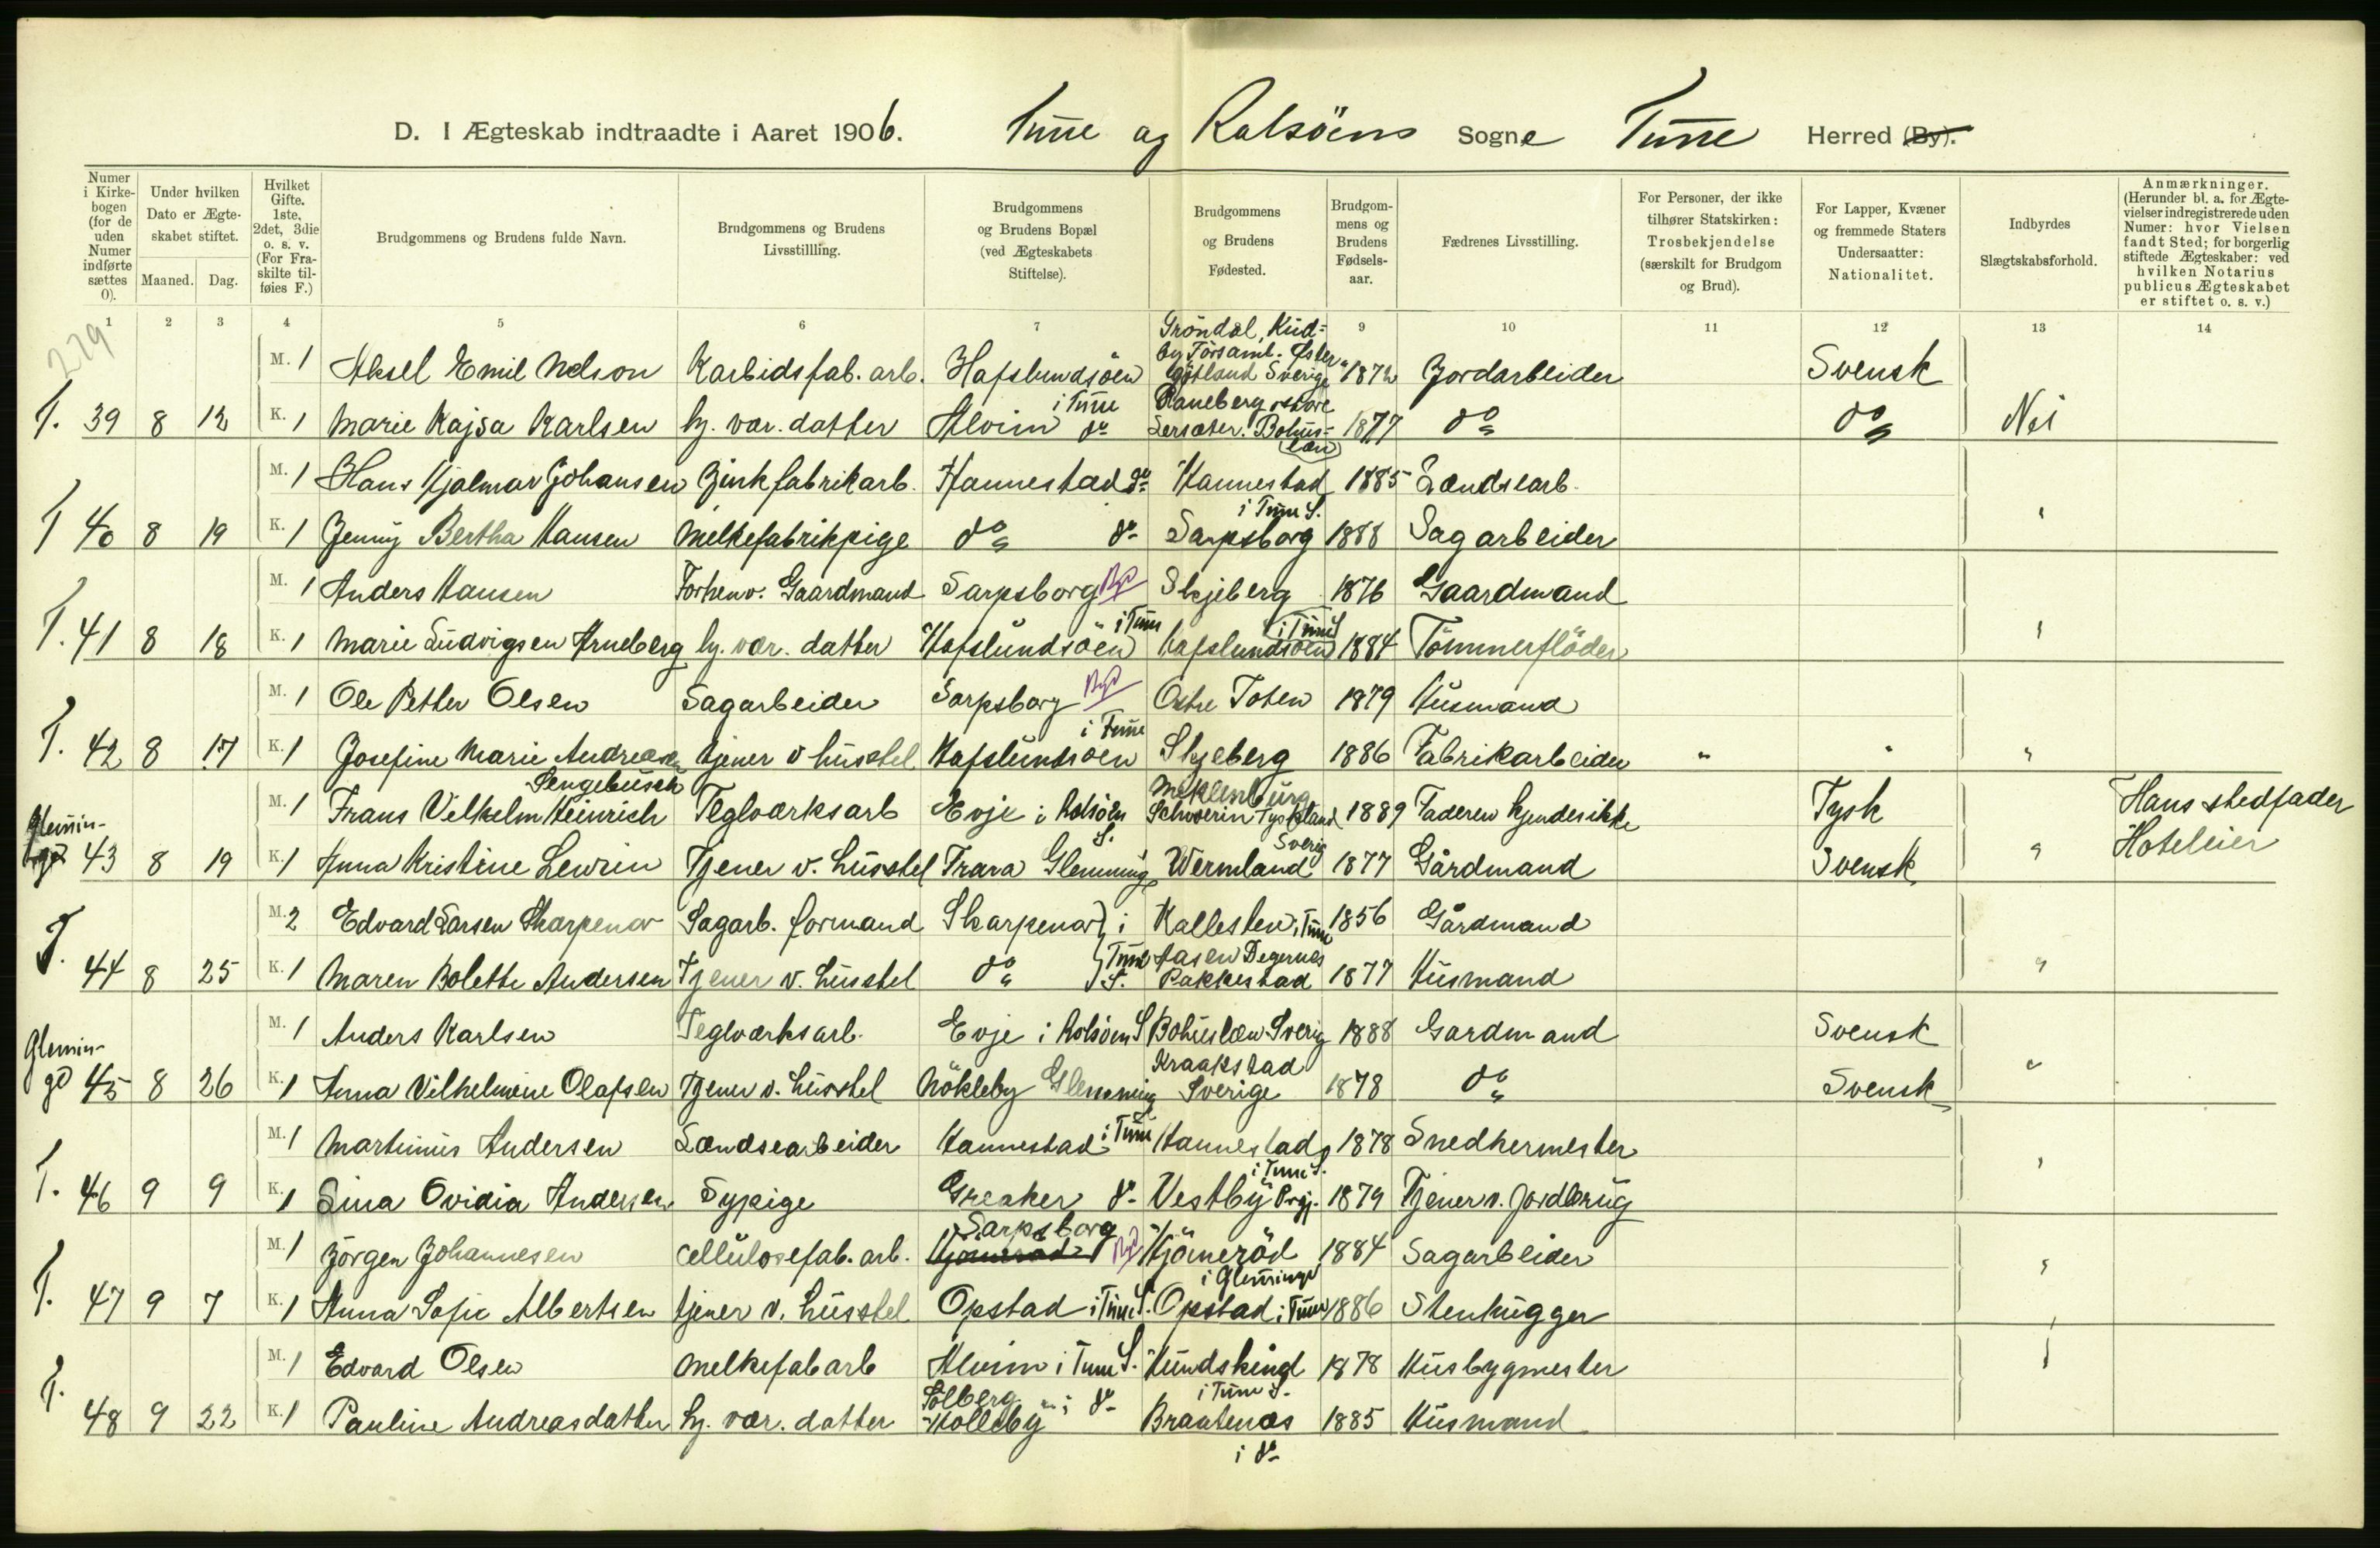 D. I Ægteskab indtraadte i Aaret 1906. Tune og Rolsöens Sogne Tune Herred (By).
Numer i Kirkebogen (for de uden Numer indførte sættes 0).
Under hvilken Dato er Ægteskabet stiftet.
Maaned. Dag.
Hvilket Gifte. 1ste, 2det, 3die o. s. v. (For Fraskilte tilføies F.)
Brudgommens og Brudens fulde Navn.
Brudgommens og Brudens Livsstillling.
Brudgommens og Brudens Bopæl (ved Ægteskabets Stiftelse).
Brudgommens og Brudens Fødested.
Brudgommens og Brudens Fødselsaar.
Fædrenes Livsstilling.
For Personer, der ikke tilhører Statskirken: Trosbekjendelse (særskilt for Brudgom og Brud).
For Lapper, Kvæner og fremmede Staters Undersaatter: Nationalitet.
Indbyrdes Slægtskabsforhold.
Anmærkninger. (Herunder bl. a. for Ægtevielser indregistrerede uden Numer: hvor Vielsen fandt Sted; for borgerlig stiftede Ægteskaber: ved hvilken Notarius publicus Ægteskabet er stiftet o. s. v.)
1 2 3 4 5 6 7 9 10 11 12 13 14
229
M. 1 Aksel Emil Nelson Karbidsfab. arb. Hafslundsöen Gröndal, Kudby Församl. Östergötland Sverige 1872 Jordarbeider Svensk
T. 39 8 12 K. 1 Marie Kajsa Karlsen hj. vær. datter Alvim i Tune do Raneberg Bohuslæn 1877 do do Nei
M. 1 Hans Hjalmar Johansen Zinkfabrikarb. Hannestad do Hannestad i Tune S. 1885 Lændsearb.
T 40 8 19 K. 1 Jenny Bertha Hansen Melkefabrikpige do do Sarpsborg 1888 Sagarbeider "
M. 1 Anders Hansen Forhenv. Gaardmand Sarpsborg By Skjeberg 1876 Gaardmand
T. 41 8 18 K. 1 Marie Ludvigsen Arneberg hj. vær. datter Hafslundsöen i Tune Hafslundsöen i Tune S 1884 Tömmerflöder "
M. 1 Ole Petter Olsen Sagarbeider Sarpsborg By Östre Toten 1879 Husmand
T. 42 8 17 K. 1 Josefine Marie Andreasen tjener v husstel Hafslundsöen i Tune Skjeberg 1886 Fabrikarbeider " " "
M. 1 Frans Vilhelm Heinrich Sengebusch Teglværksarb Evje i Rolsöen S. Meklenburg Schwerin Tyskland 1889 Faderen kjendes ikke Tysk Hans stedfader
Glemminge 43 8 19 K. 1 Anna Kristine Lewein Tjener v. husstel Trara Glemminge Wermland Sverig 1877 Gårdmand Svensk " Hoteleier
M. 2 Edvard Larsen Skarpenor Sagarb. formand Skarpenor i Kallesten i Tune 1856 Gårdmand
T. 44 8 25 K. 1 Maren Bolette Andersen Tjener v. husstel do Tune S. Aasen Degernes Rakkestad 1877 Husmand "
M. 1 Anders Karlsen Teglværksarb. Evje i Rolsöens S Bohuslæn Sverig 1888 Gardmand Svensk
Glemminge 45 8 26 K. 1 Anna Vilhelmine Olafsen Tjener v. husstel Nökleby Glemminge Kraakstad Sverige 1878 do Svensk "
M. 1 Martinius Andersen Lændsearbeider Hannestad i Tune Hannestad i Tune S. 1878 Snedkermester
T. 46 9 9 K. 1 Lina Ovidia Andersen Sypige Greaker do Vestby Prgj. 1879 Tjener v. Jordbrug "
M. 1 Jörgen Johannesen Cellulosefab. arb. Sarpsborg By Hjömeröd i Glemminge 1884 Sagarbeider
T. 47 9 7 K. 1 Anna Sofie Albertsen tjener v. husstel Opstad i Tune S. Opstad i Tune 1886 Stenhugger "
M. 1 Edvard Olsen Melkefabarb Alvim i Tune S. Hundskind i Tune S. 1878 Husbygmester
T. 48 9 22 K. 1 Pauline Andreasdatter hj. vær. datter Solberg Holleby i do Braatenæs i do 1885 Husmand "